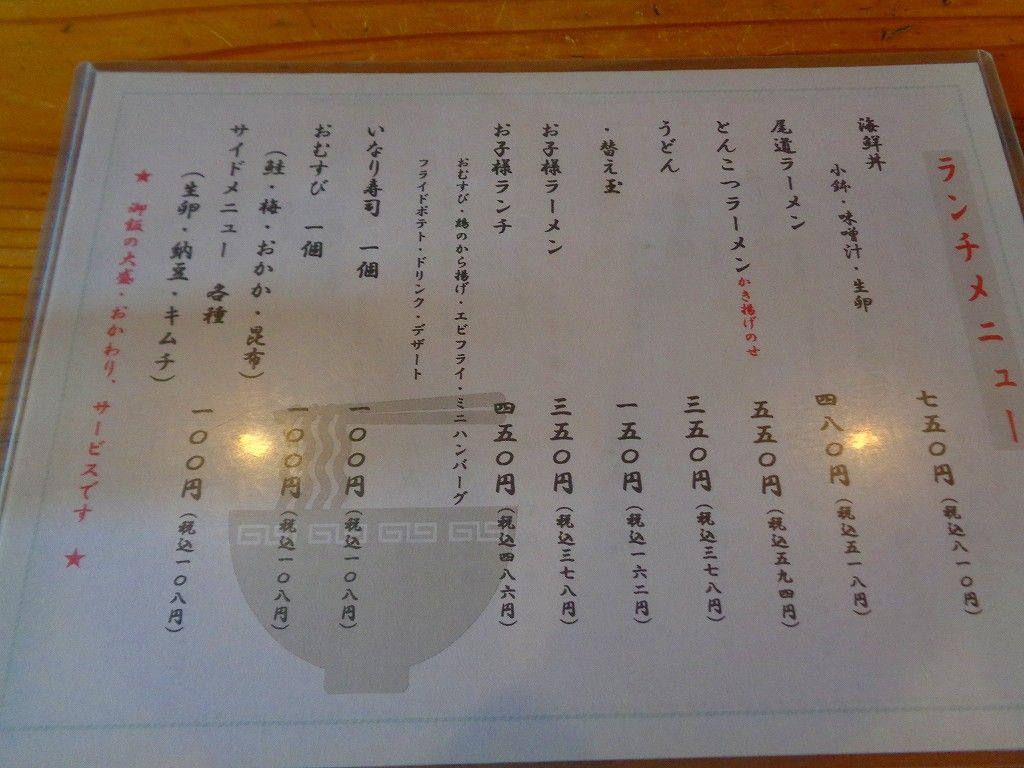 ランチメニュー
海鮮丼　七五〇円（税込八一〇円）
小鉢・味噌汁・生卵
尾道ラーメン　四八〇円（税込五一八円）
とんこつラーメンかき揚げのせ　五五〇円（税込五九四円）
うどん　三五〇円（税込三七八円）
・替え玉　一五〇円（税込一六二円）
お子様ラーメン　三五〇円（税込三七八円）
お子様ランチ　四五〇円（税込四八六円）
おむすび・鶏のから揚げ・エビフライ・ミニハンバーグ
フライドポテト・ドリンク・デザート
いなり寿司　一個　一〇〇円（税込一〇八円）
おむすび　一個　一〇〇円（税込一〇八円）
（鮭・梅・おかか・昆布）
サイドメニュー　各種　一〇〇円（税込一〇八円）
（生卵・納豆・キムチ）
★　御飯の大盛・おかわり、サービスです　★